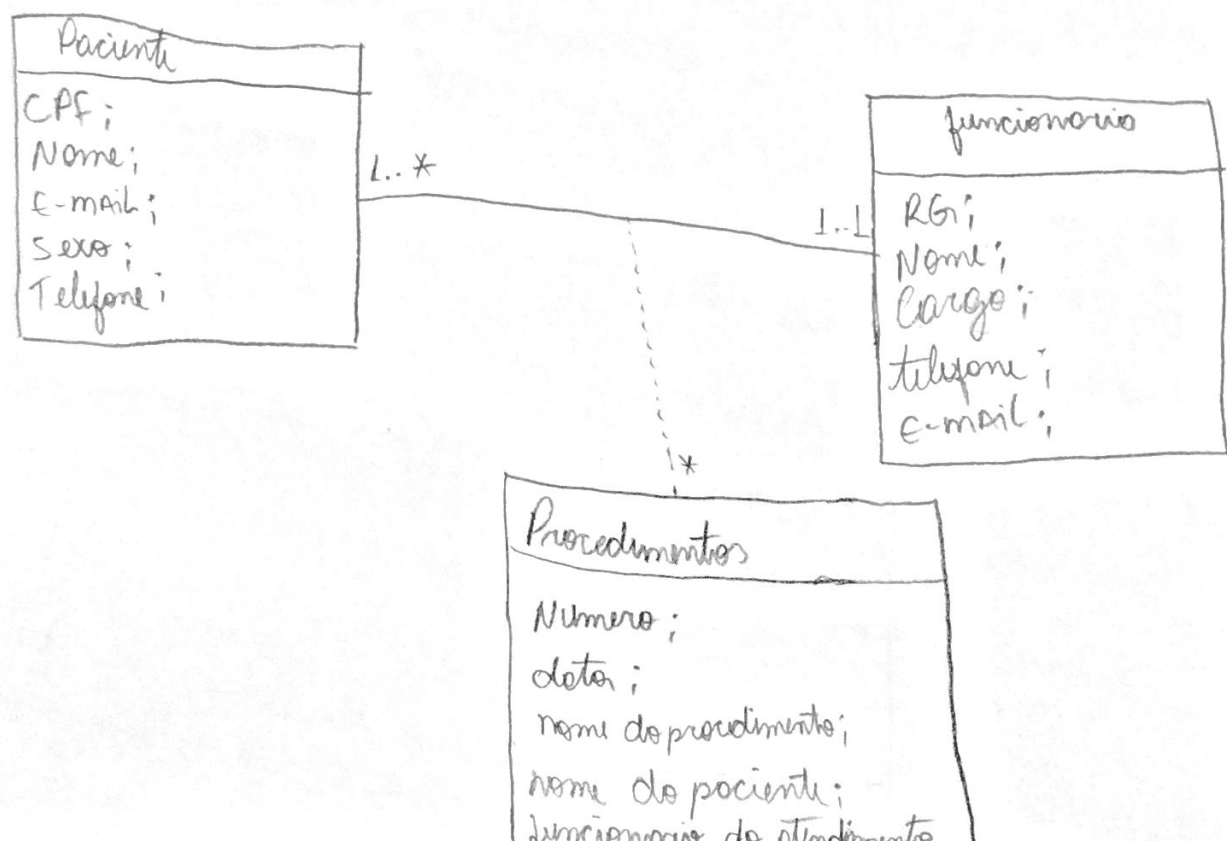 Paciente
CPF;
Nome;
E-mAiL;
Sexo;
Telefone;
1..*
1..1
funcionario
RG;
Nome;
Cargo;
telefone;
E-mAiL;
*
Procedimentos
Numero;
data;
nome do procedimento;
nome do paciente;
funcionario do atendimento